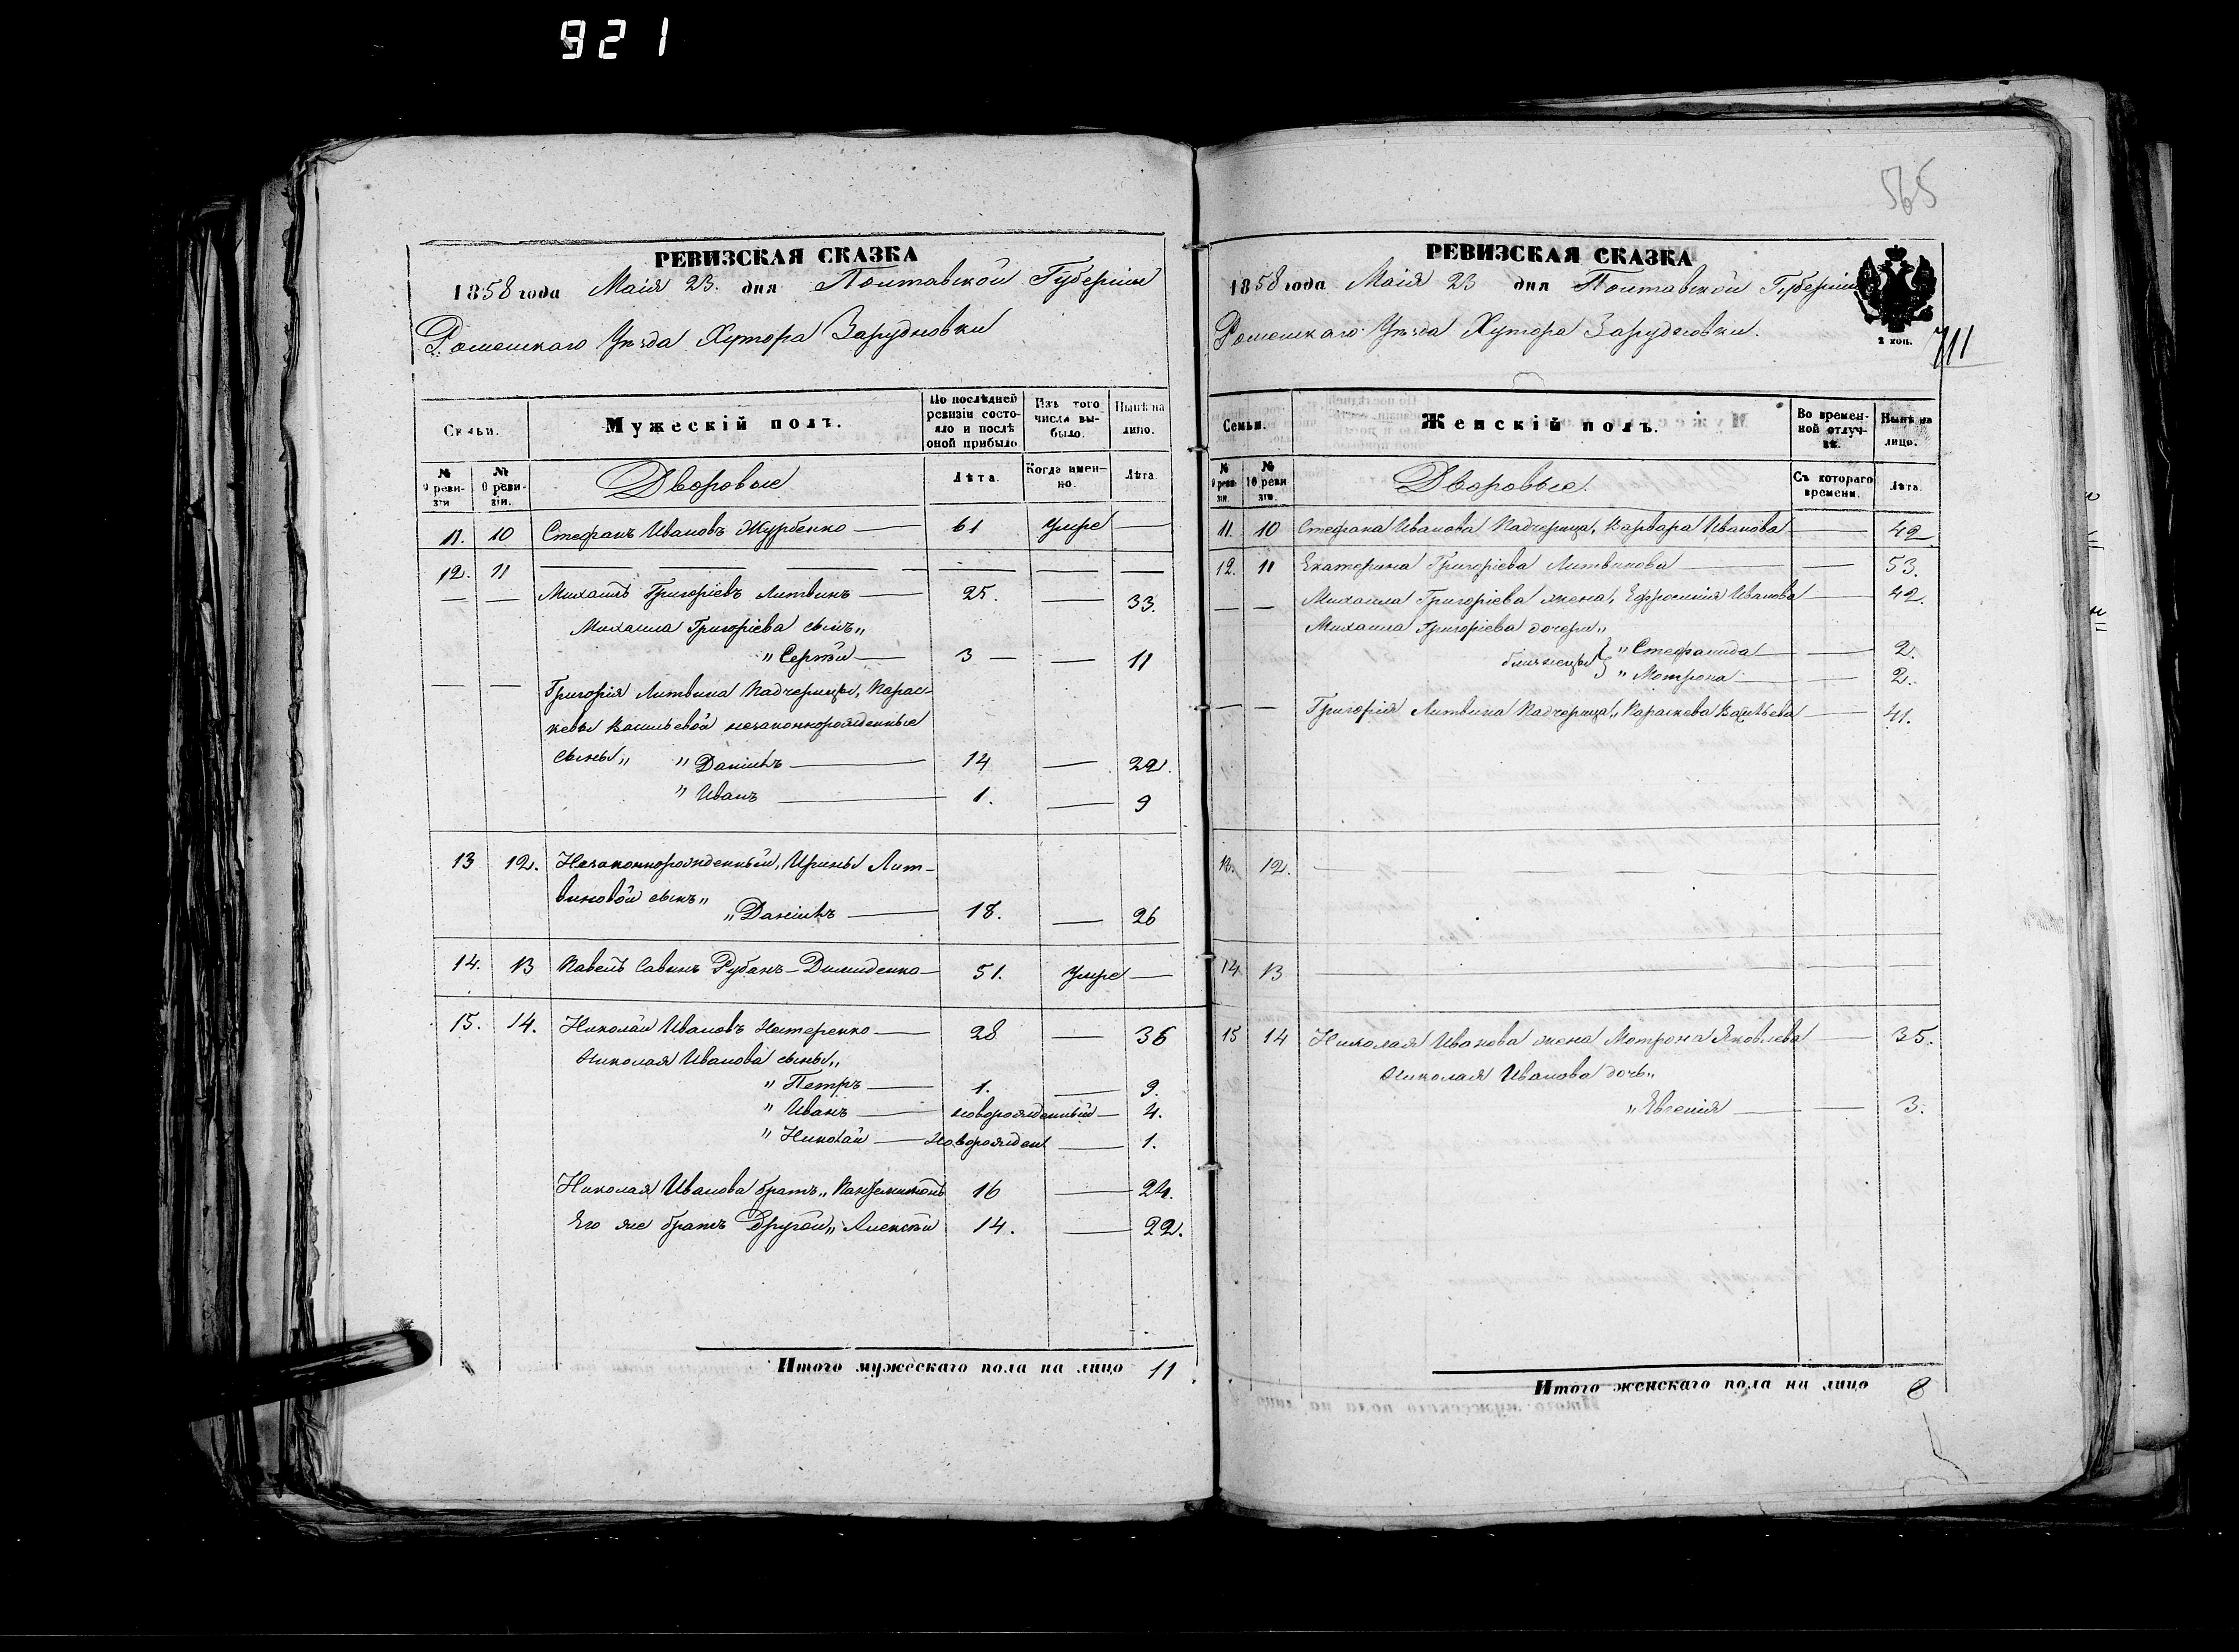 921
РЕВИЗСКАЯ СКАЗКА
1858 года Маія 23. дня Полтавской Губерніи
Роменскаго Уѣзда Хутора Зарудновки
Семьи.
Мужескій полъ.
По послѣдней ревизіи состояло и послѣ оной прибыло.
Изъ того числа выбыло.
Нынѣ на лицо.
№ 9 ревизіи
№ 10 ревизіи.
Дворовые
Лѣта.
Когда именно.
Лѣта.
11. 10 Стефанъ Ивановъ Журбенко — 61 умре —
12. 11 — — — — — — —
— — Михаилъ Григоріевъ Литвинъ — 25. — 33.
Михаила Григоріева сынъ„
„ Сергѣй — 3 — — 11
— — Григорія Литвина Падчерицы, Парас-
кевы Васильевой незаконнорожденные
сыны„ „ Даніилъ — 14 — 22.
„ Иванъ — 1. — 9
13 12. Незаконнорожденный, Ирины Лит-
виновой сынъ„
„ Даніилъ — 18. — 26
14. 13 Павелъ Савинъ Рубанъ-Димиденко — 51. умре —
15. 14. Николай Ивановъ Нестеренко — 28 — 36
Николая Иванова сыны„
„ Петръ — 1. — 9.
„ Иванъ — новорожденный — 4.
„ Николай — Новорожден — 1.
Николая Иванова братъ„ Пантелимонъ 16 — 24.
Его же братъ Другой„ Алексѣй 14. — 22.
Итого мужескаго пола на лицо 11
565
РЕВИЗСКАЯ СКАЗКА
1858 года Маія 23 дня Полтавской Губерніи
Роменскаго Уѣзда Хутора Зарудновки.
2 коп.
711
Семьи.
Женскій полъ.
Во временной отлучкѣ.
Нынѣ на лицо.
№ 9 ревизіи.
№ 10 ревизіи.
Дворовые.
Съ котораго времени.
Лѣта.
11. 10 Стефана Иванова Падчерица, Варвара Иванова — 42
12. 11 Екатерина Григоріева Литвинова — — 53.
— — Михаила Григоріева жена, Ефросинія Иванова — 42.
Михаила Григоріева дочери„
близнецы } „ Стефанида — — 2.
„ Мотрона — — 2.
— — Григорія Литвина Падчерица„ Параскева Васильева — 41.
13. 12. — — — — —
14. 13 — — —
15 14 Николая Иванова жена Мотрона Яковлева — 35.
Николая Иванова дочь„
„ Евгенія — — 3.
Итого женскаго пола на лицо 8